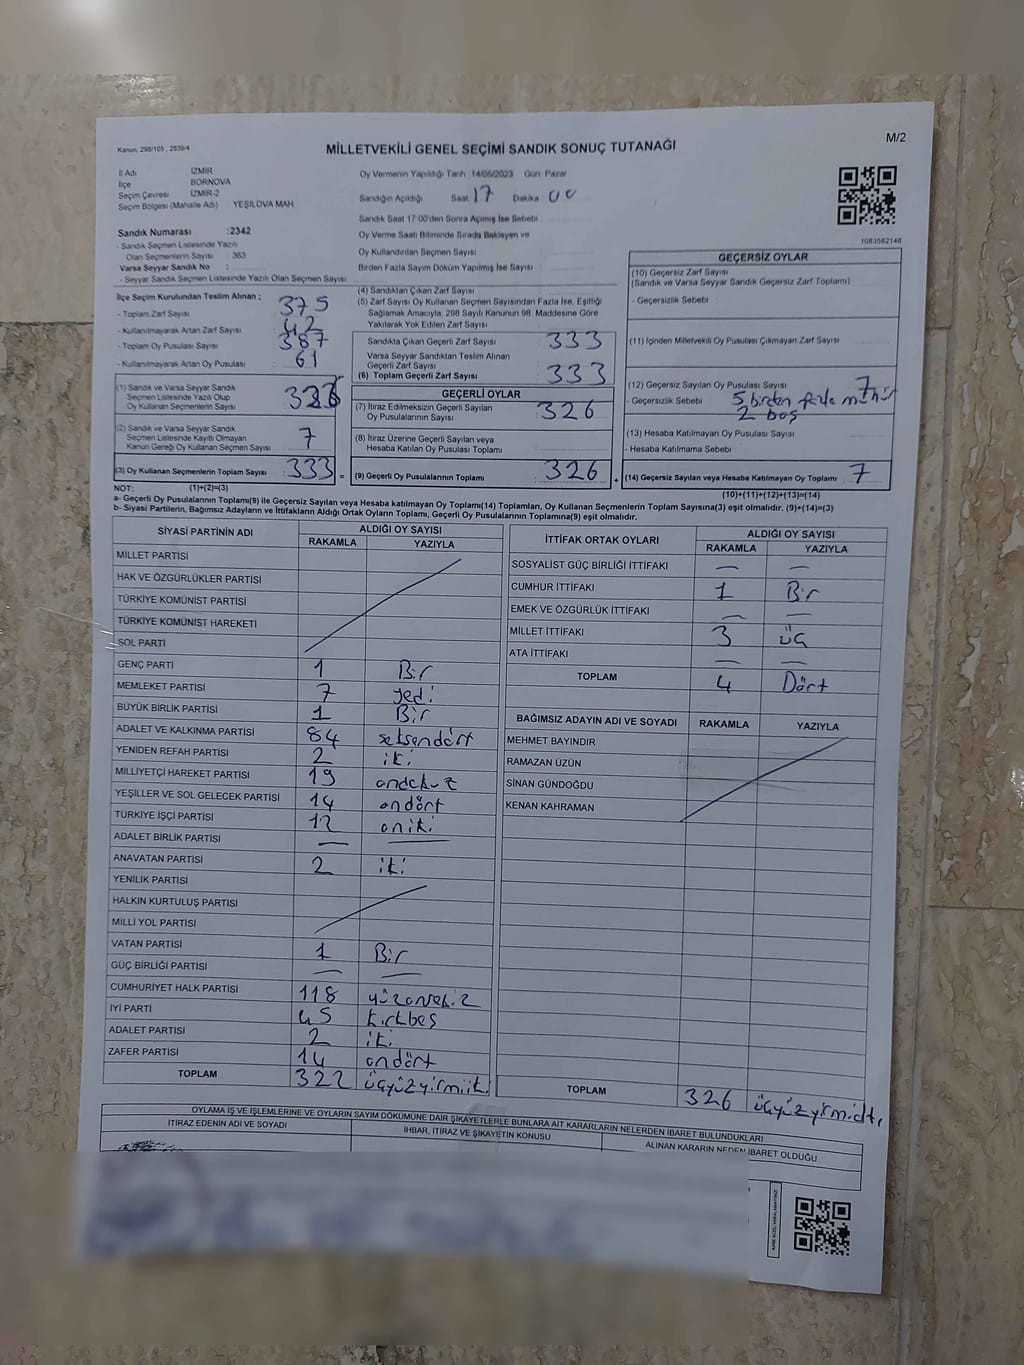 Kanun; 298/105 ; 2839/4
M/2
MİLLETVEKİLİ GENEL SEÇİMİ SANDIK SONUÇ TUTANAĞI
İl Adı İZMİR
İlçe BORNOVA
Seçim Çevresi İZMİR-2
Seçim Bölgesi (Mahalle Adı) YEŞİLOVA MAH.
Sandık Numarası :2342
- Sandık Seçmen Listesinde Yazılı
Olan Seçmenlerin Sayısı 363
Varsa Seyyar Sandık No :
- Seyyar Sandık Seçmen Listesinde Yazılı Olan Seçmen Sayısı:
Oy Vermenin Yapıldığı Tarih :14/05/2023 Gün: Pazar
Sandığın Açıldığı Saat 17 Dakika 00
Sandık Saat 17:00'den Sonra Açılmış İse Sebebi
Oy Verme Saati Bitiminde Sırada Bekleyen ve
Oy Kullandırılan Seçmen Sayısı
Birden Fazla Sayım Döküm Yapılmış İse Sayısı
1083582148
İlçe Seçim Kurulundan Teslim Alınan ;
- Toplam Zarf Sayısı 375
- Kullanılmayarak Artan Zarf Sayısı 42
- Toplam Oy Pusulası Sayısı 387
- Kullanılmayarak Artan Oy Pusulası 61
(1) Sandık ve Varsa Seyyar Sandık
Seçmen Listesinde Yazılı Olup
Oy Kullanan Seçmenlerin Sayısı 326
(2) Sandık ve Varsa Seyyar Sandık
Seçmen Listesinde Kayıtlı Olmayan
Kanun Gereği Oy Kullanan Seçmen Sayısı 7
(3) Oy Kullanan Seçmenlerin Toplam Sayısı 333 =
(4) Sandıktan Çıkan Zarf Sayısı
(5) Zarf Sayısı Oy Kullanan Seçmen Sayısından Fazla İse, Eşitliği
Sağlamak Amacıyla, 298 Sayılı Kanunun 98. Maddesine Göre
Yakılarak Yok Edilen Zarf Sayısı
Sandıkta Çıkan Geçerli Zarf Sayısı 333
Varsa Seyyar Sandıktan Teslim Alınan
Geçerli Zarf Sayısı
(6) Toplam Geçerli Zarf Sayısı 333
GEÇERLİ OYLAR
(7) İtiraz Edilmeksizin Geçerli Sayılan
Oy Pusulalarının Sayısı 326
(8) İtiraz Üzerine Geçerli Sayılan veya
Hesaba Katılan Oy Pusulası Toplamı
(9) Geçerli Oy Pusulalarının Toplamı 326 +
GEÇERSİZ OYLAR
(10) Geçersiz Zarf Sayısı
(Sandık ve Varsa Seyyar Sandık Geçersiz Zarf Toplamı)
- Geçersizlik Sebebi
(11) İçinden Milletvekili Oy Pusulası Çıkmayan Zarf Sayısı
(12) Geçersiz Sayılan Oy Pusulası Sayısı 7
- Geçersizlik Sebebi 5 birden fazla mühür
2 boş
(13) Hesaba Katılmayan Oy Pusulası Sayısı
- Hesaba Katılmama Sebebi
(14) Geçersiz Sayılan veya Hesaba Katılmayan Oy Toplamı 7
NOT: (1)+(2)=(3) (10)+(11)+(12)+(13)=(14)
a- Geçerli Oy Pusulalarının Toplamı(9) ile Geçersiz Sayılan veya Hesaba katılmayan Oy Toplamı(14) Toplamları, Oy Kullanan Seçmenlerin Toplam Sayısına(3) eşit olmalıdır. (9)+(14)=(3)
b- Siyasi Partilerin, Bağımsız Adayların ve İttifakların Aldığı Ortak Oyların Toplamı, Geçerli Oy Pusulalarının Toplamına(9) eşit olmalıdır.
SİYASİ PARTİNİN ADI ALDIĞI OY SAYISI
RAKAMLA YAZIYLA
MİLLET PARTİSİ
HAK VE ÖZGÜRLÜKLER PARTİSİ
TÜRKİYE KOMÜNİST PARTİSİ
TÜRKİYE KOMÜNİST HAREKETİ
SOL PARTİ
GENÇ PARTİ 1 Bir
MEMLEKET PARTİSİ 7 yedi
BÜYÜK BİRLİK PARTİSİ 1 Bir
ADALET VE KALKINMA PARTİSİ 84 seksendört
YENİDEN REFAH PARTİSİ 2 iki
MİLLİYETÇİ HAREKET PARTİSİ 19 ondokuz
YEŞİLLER VE SOL GELECEK PARTİSİ 14 ondört
TÜRKİYE İŞÇİ PARTİSİ 12 oniki
ADALET BİRLİK PARTİSİ — —
ANAVATAN PARTİSİ 2 iki
YENİLİK PARTİSİ
HALKIN KURTULUŞ PARTİSİ
MİLLİ YOL PARTİSİ
VATAN PARTİSİ 1 Bir
GÜÇ BİRLİĞİ PARTİSİ — —
CUMHURİYET HALK PARTİSİ 118 yüzonsekiz
İYİ PARTİ 45 kırkbeş
ADALET PARTİSİ 2 iki
ZAFER PARTİSİ 14 ondört
TOPLAM 322 üçyüzyirmiiki
İTTİFAK ORTAK OYLARI ALDIĞI OY SAYISI
RAKAMLA YAZIYLA
SOSYALİST GÜÇ BİRLİĞİ İTTİFAKI — —
CUMHUR İTTİFAKI 1 Bir
EMEK VE ÖZGÜRLÜK İTTİFAKI — —
MİLLET İTTİFAKI 3 üç
ATA İTTİFAKI — —
TOPLAM 4 Dört
BAĞIMSIZ ADAYIN ADI VE SOYADI RAKAMLA YAZIYLA
MEHMET BAYINDIR
RAMAZAN ÜZÜN
SİNAN GÜNDOĞDU
KENAN KAHRAMAN
TOPLAM 326 üçyüzyirmialtı
OYLAMA İŞ VE İŞLEMLERİNE VE OYLARIN SAYIM DÖKÜMÜNE DAİR ŞİKAYETLERLE BUNLARA AİT KARARLARIN NELERDEN İBARET BULUNDUKLARI
İTİRAZ EDENİN ADI VE SOYADI İHBAR, İTİRAZ VE ŞİKAYETİN KONUSU ALINAN KARARIN NEDEN İBARET OLDUĞU